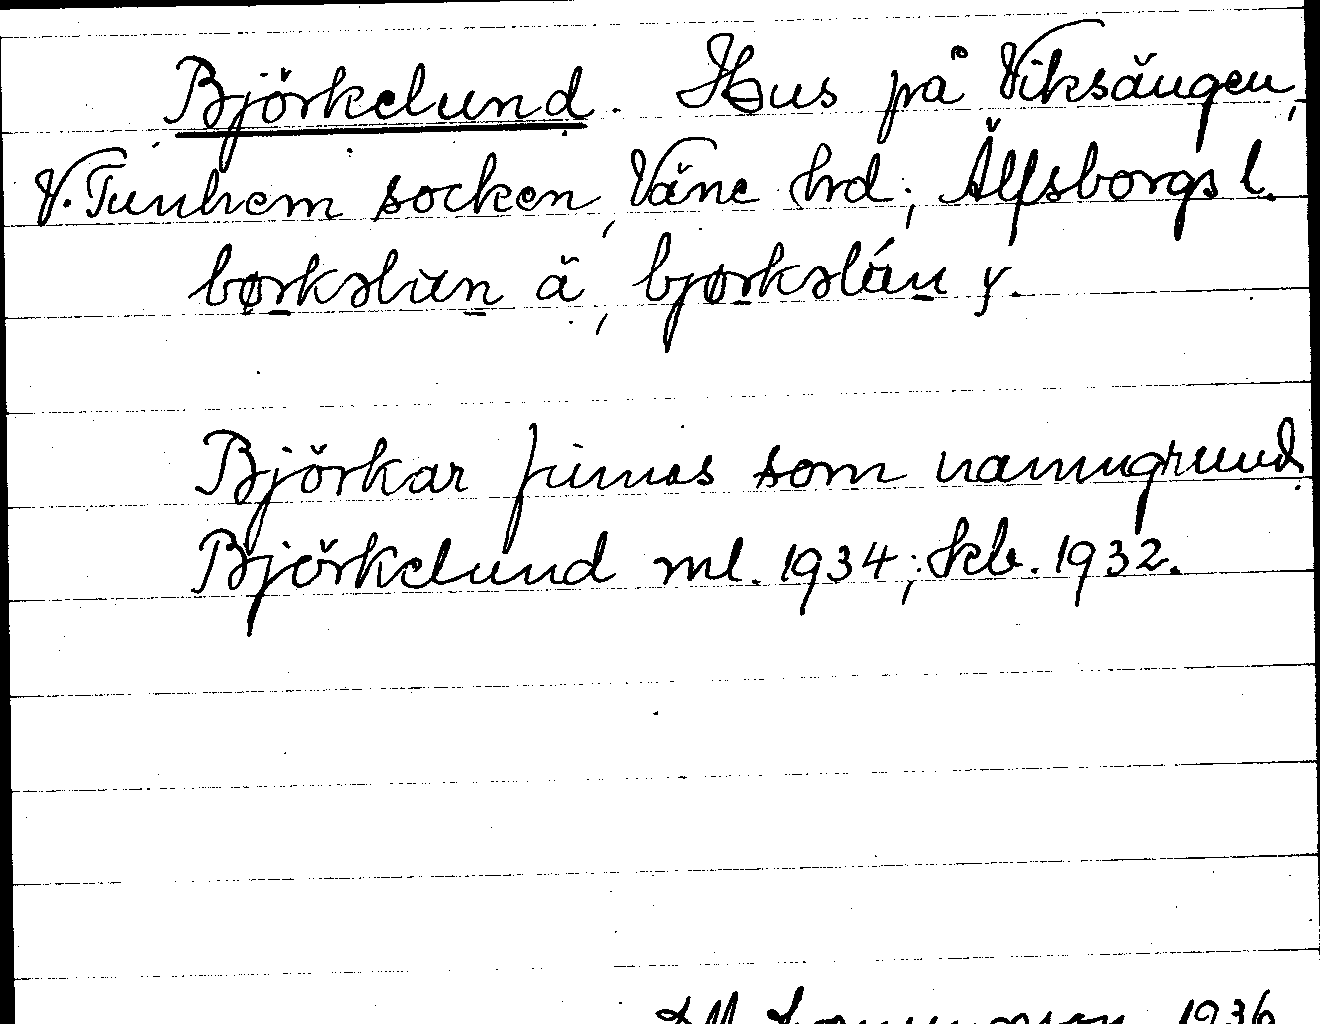 Björkelund. Hus på Viksängen,
V. Tunhem socken, Väne hrd; Älfsborgs l.
børkəlun ä, bjørkəlún y.
Björkar finnas som namngrund.
Björkelund ml. 1934; Skb. 1932.
1936